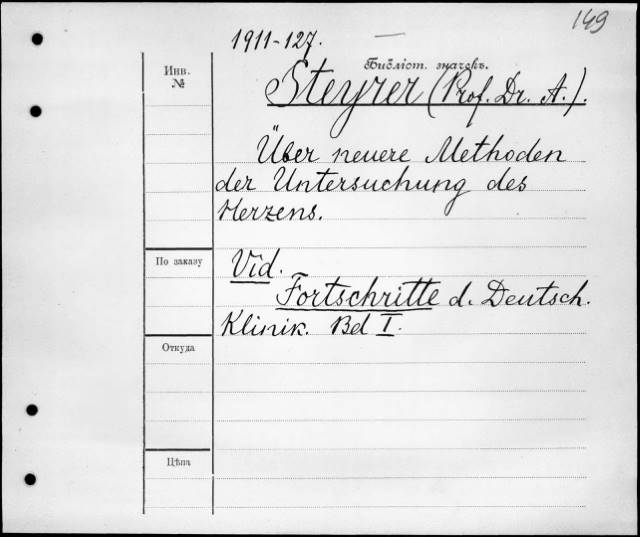 149
1911-127.
Библіот. значекъ.
Инв.
№
Steyrer (Prof. Dr. A.).
Über neuere Methoden
der Untersuchung des
Herzens.
По заказу
Vid.
Fortschritte d. Deutsch.
Klinik. Bd I.
Откуда
Цѣна